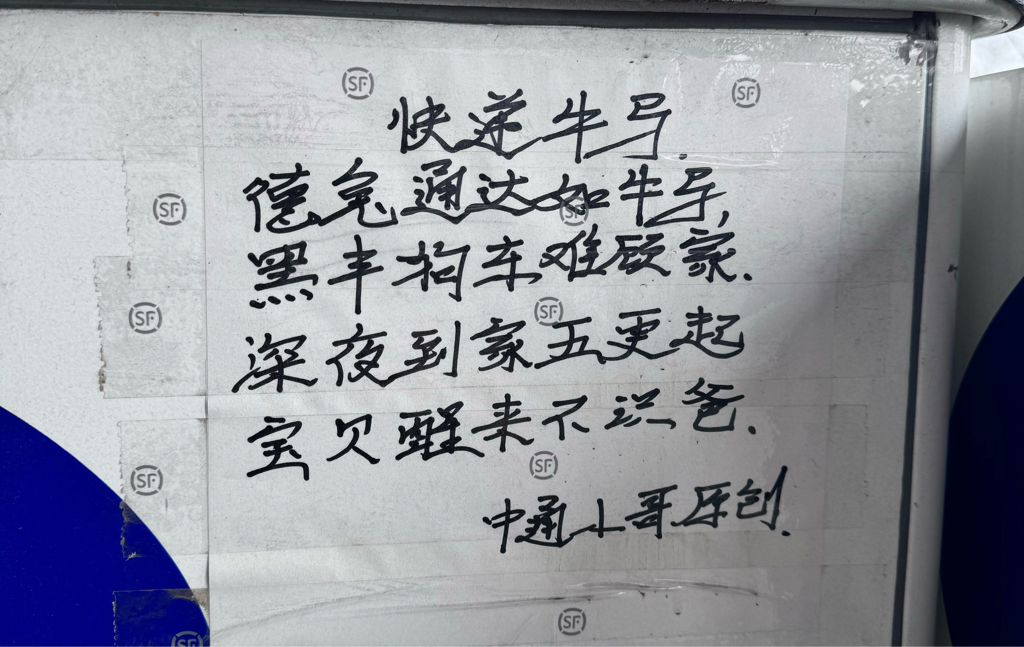 快递牛马.
德急通达如牛马,
黑丰狗东难顾家.
深夜到家五更起
宝贝醒来不识爸.
中通小哥原创.
SF
SF
SF
SF
SF
SF
SF
SF
SF
SF